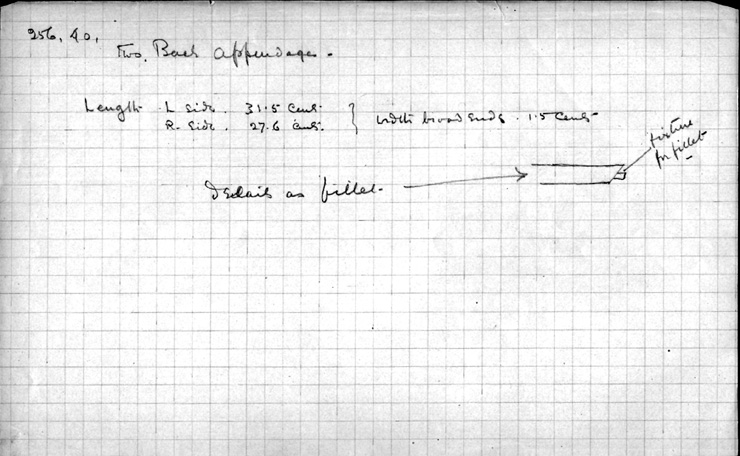 256, 40,
two, Back appendages.
Length L side. 31.5 cents. } width broad ends. 1.5 cents
R. Side. 27.6 cents.
fixture
for fillet
Details as fillet.